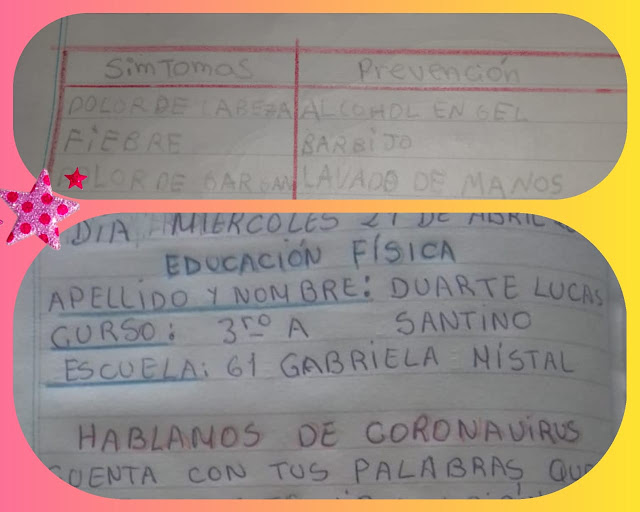 SimTomas Prevención
DOLOR DE CABEZA ALCOHOL EN GEL
FIEBRE BARBIJO
DOLOR DE GARGAN LAVADO DE MANOS
DIA MIERCOLES 21 DE ABRIL
EDUCACIÓN FÍSICA
APELLIDO Y NOMBRE: DUARTE LUCAS
CURSO: 3ro A SANTINO
ESCUELA: 61 GABRIELA MISTAL
HABLAMOS DE CORONAVIRUS
CUENTA CON TUS PALABRAS QUE